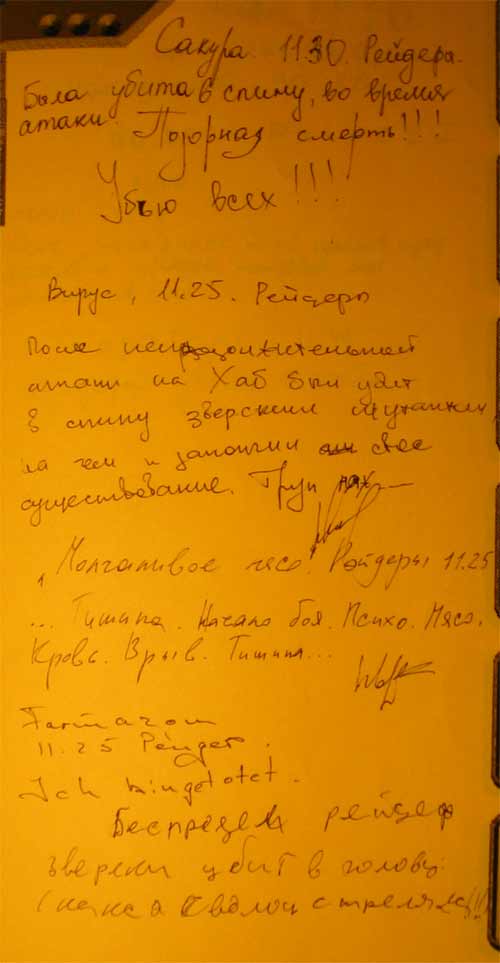 Сакура. 11.30. Рейдеры.
Была убита в спину, во время
атаки. Позорная смерть!!!
Убью всех!!!
Вирус, 11.25. Рейдеры
После непродолжительной
атаки на Хаб был убит
в спину зверским мутантом
на чем и закончил свое
существование. Труп
"Молчаливое мясо". Рейдеры 11.25
... Тишина. Начало боя. Психо. Мясо.
Кровь. Взрыв. Тишина...
Farmazon
11.25
Ich bin getotet.
Беспредел рейдер
зверски убит в голову.